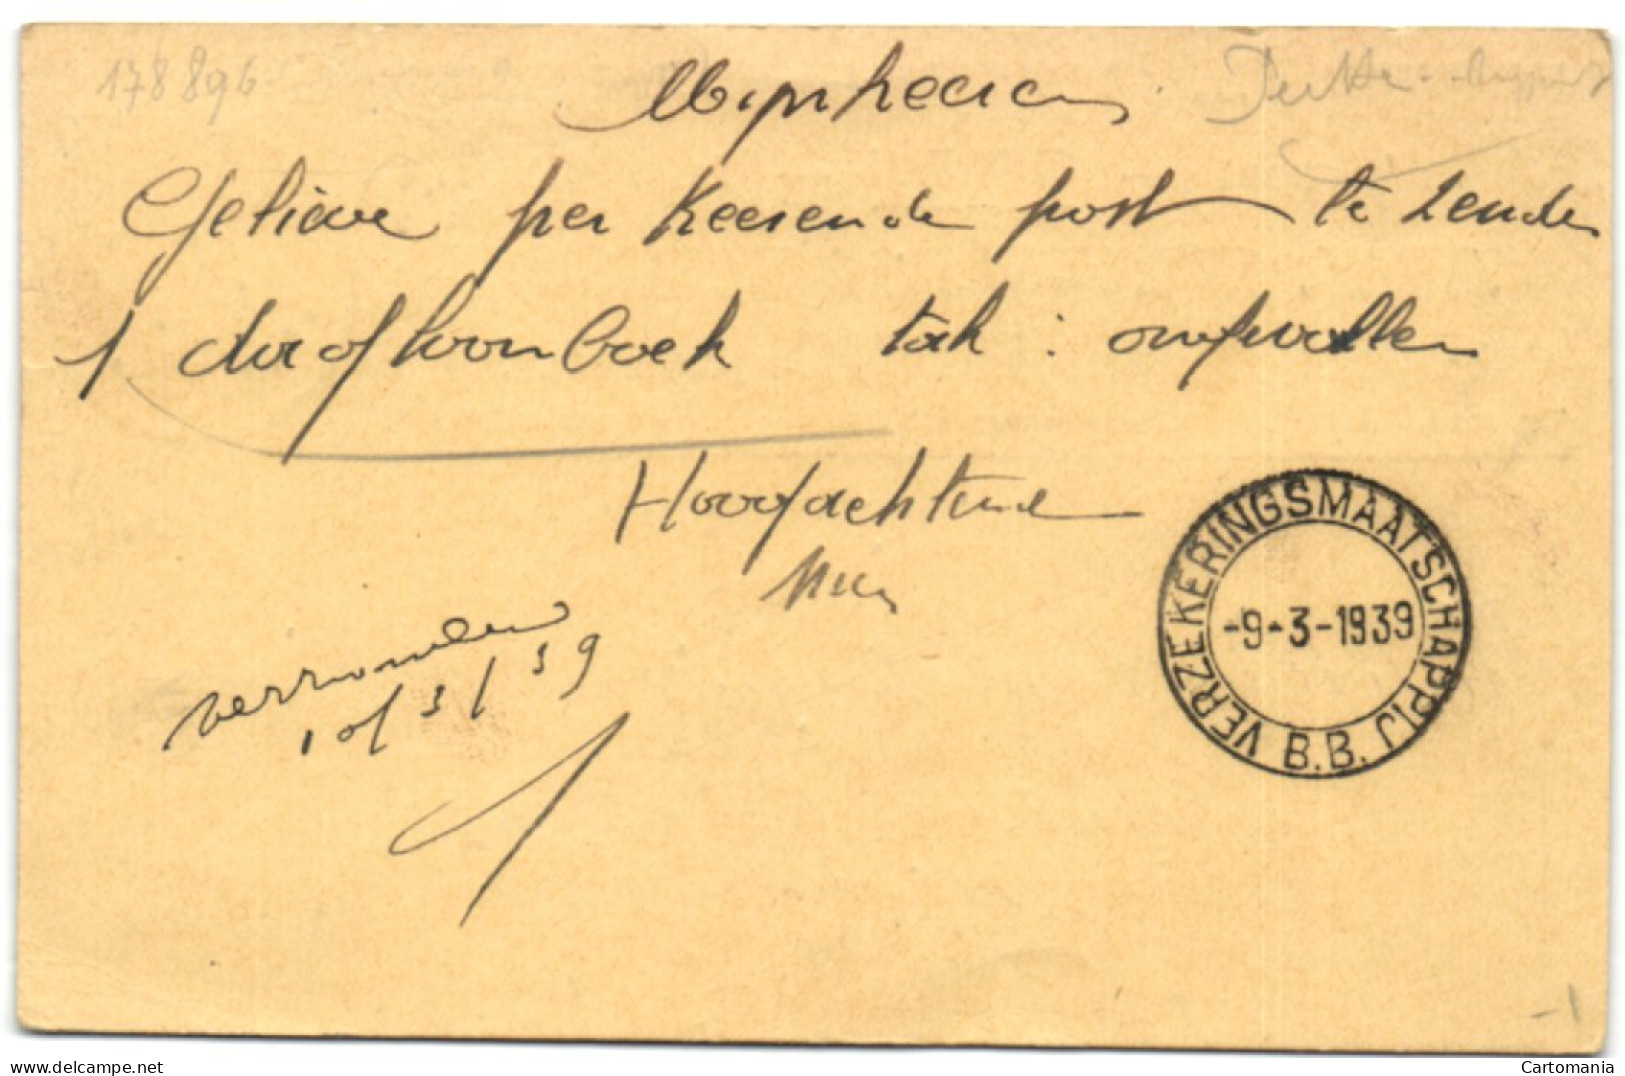 178896
Mijnheeren
Gelieve per keerende post te zenden
1 dagloonboek tak : ongevallen
Hoogachtend
verzonden
10/3/39
VERZEKERINGSMAATSCHAPPIJ B.B.
-9-3-1939
-1
delcampe.net
Cartomania